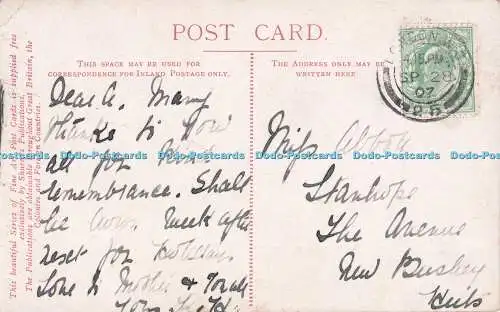 POST CARD.
THIS SPACE MAY BE USED FOR
CORRESPONDENCE FOR INLAND POSTAGE ONLY.
Dear A. Many
thanks to you
all for kind
remembrance. Shall
be down week after
next for holiday
Love to Mother &
THE ADDRESS ONLY MAY BE
WRITTEN HERE.
Miss Abbott
Stanhope
The Avenue
New Bushey
Herts
LONDON
SP 28
07
This beautiful Series of Fine Art Post Cards is supplied free
exclusively by Shurey's Publications.
The Publications are obtainable throughout Great Britain, the
Colonies and Foreign Countries.
Dodo-Postcards Dodo-Postcards Dodo-Postcards Dodo-Postcards